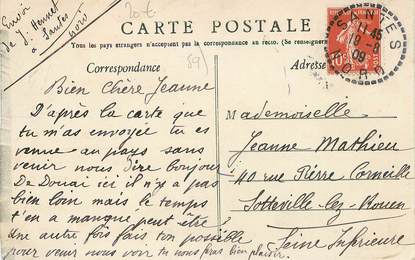 Envoi
de J. Hennet
à Santes
Nord
20 t.
59
CARTE POSTALE
Tous les pays étrangers n'acceptent pas la correspondance au recto. (Se renseigner
Correspondance
Adresse
SANTES
11 45
19 -8
09
NORD
10
Bien Chère Jeanne
D'après la carte que
tu m'as envoyée tu es
venue au pays sans
venir nous dire bonjour
De Douai ici il n'y a pas
bien loin mais le temps
t'en a manqué peut être
Une autre fois fais ton possible
pour venir nous voir tu nous feras bien plaisir.
Mademoiselle
Jeanne Mathieu
40 rue Pierre Corneille
Sotteville-lez-Rouen
Seine Inférieure